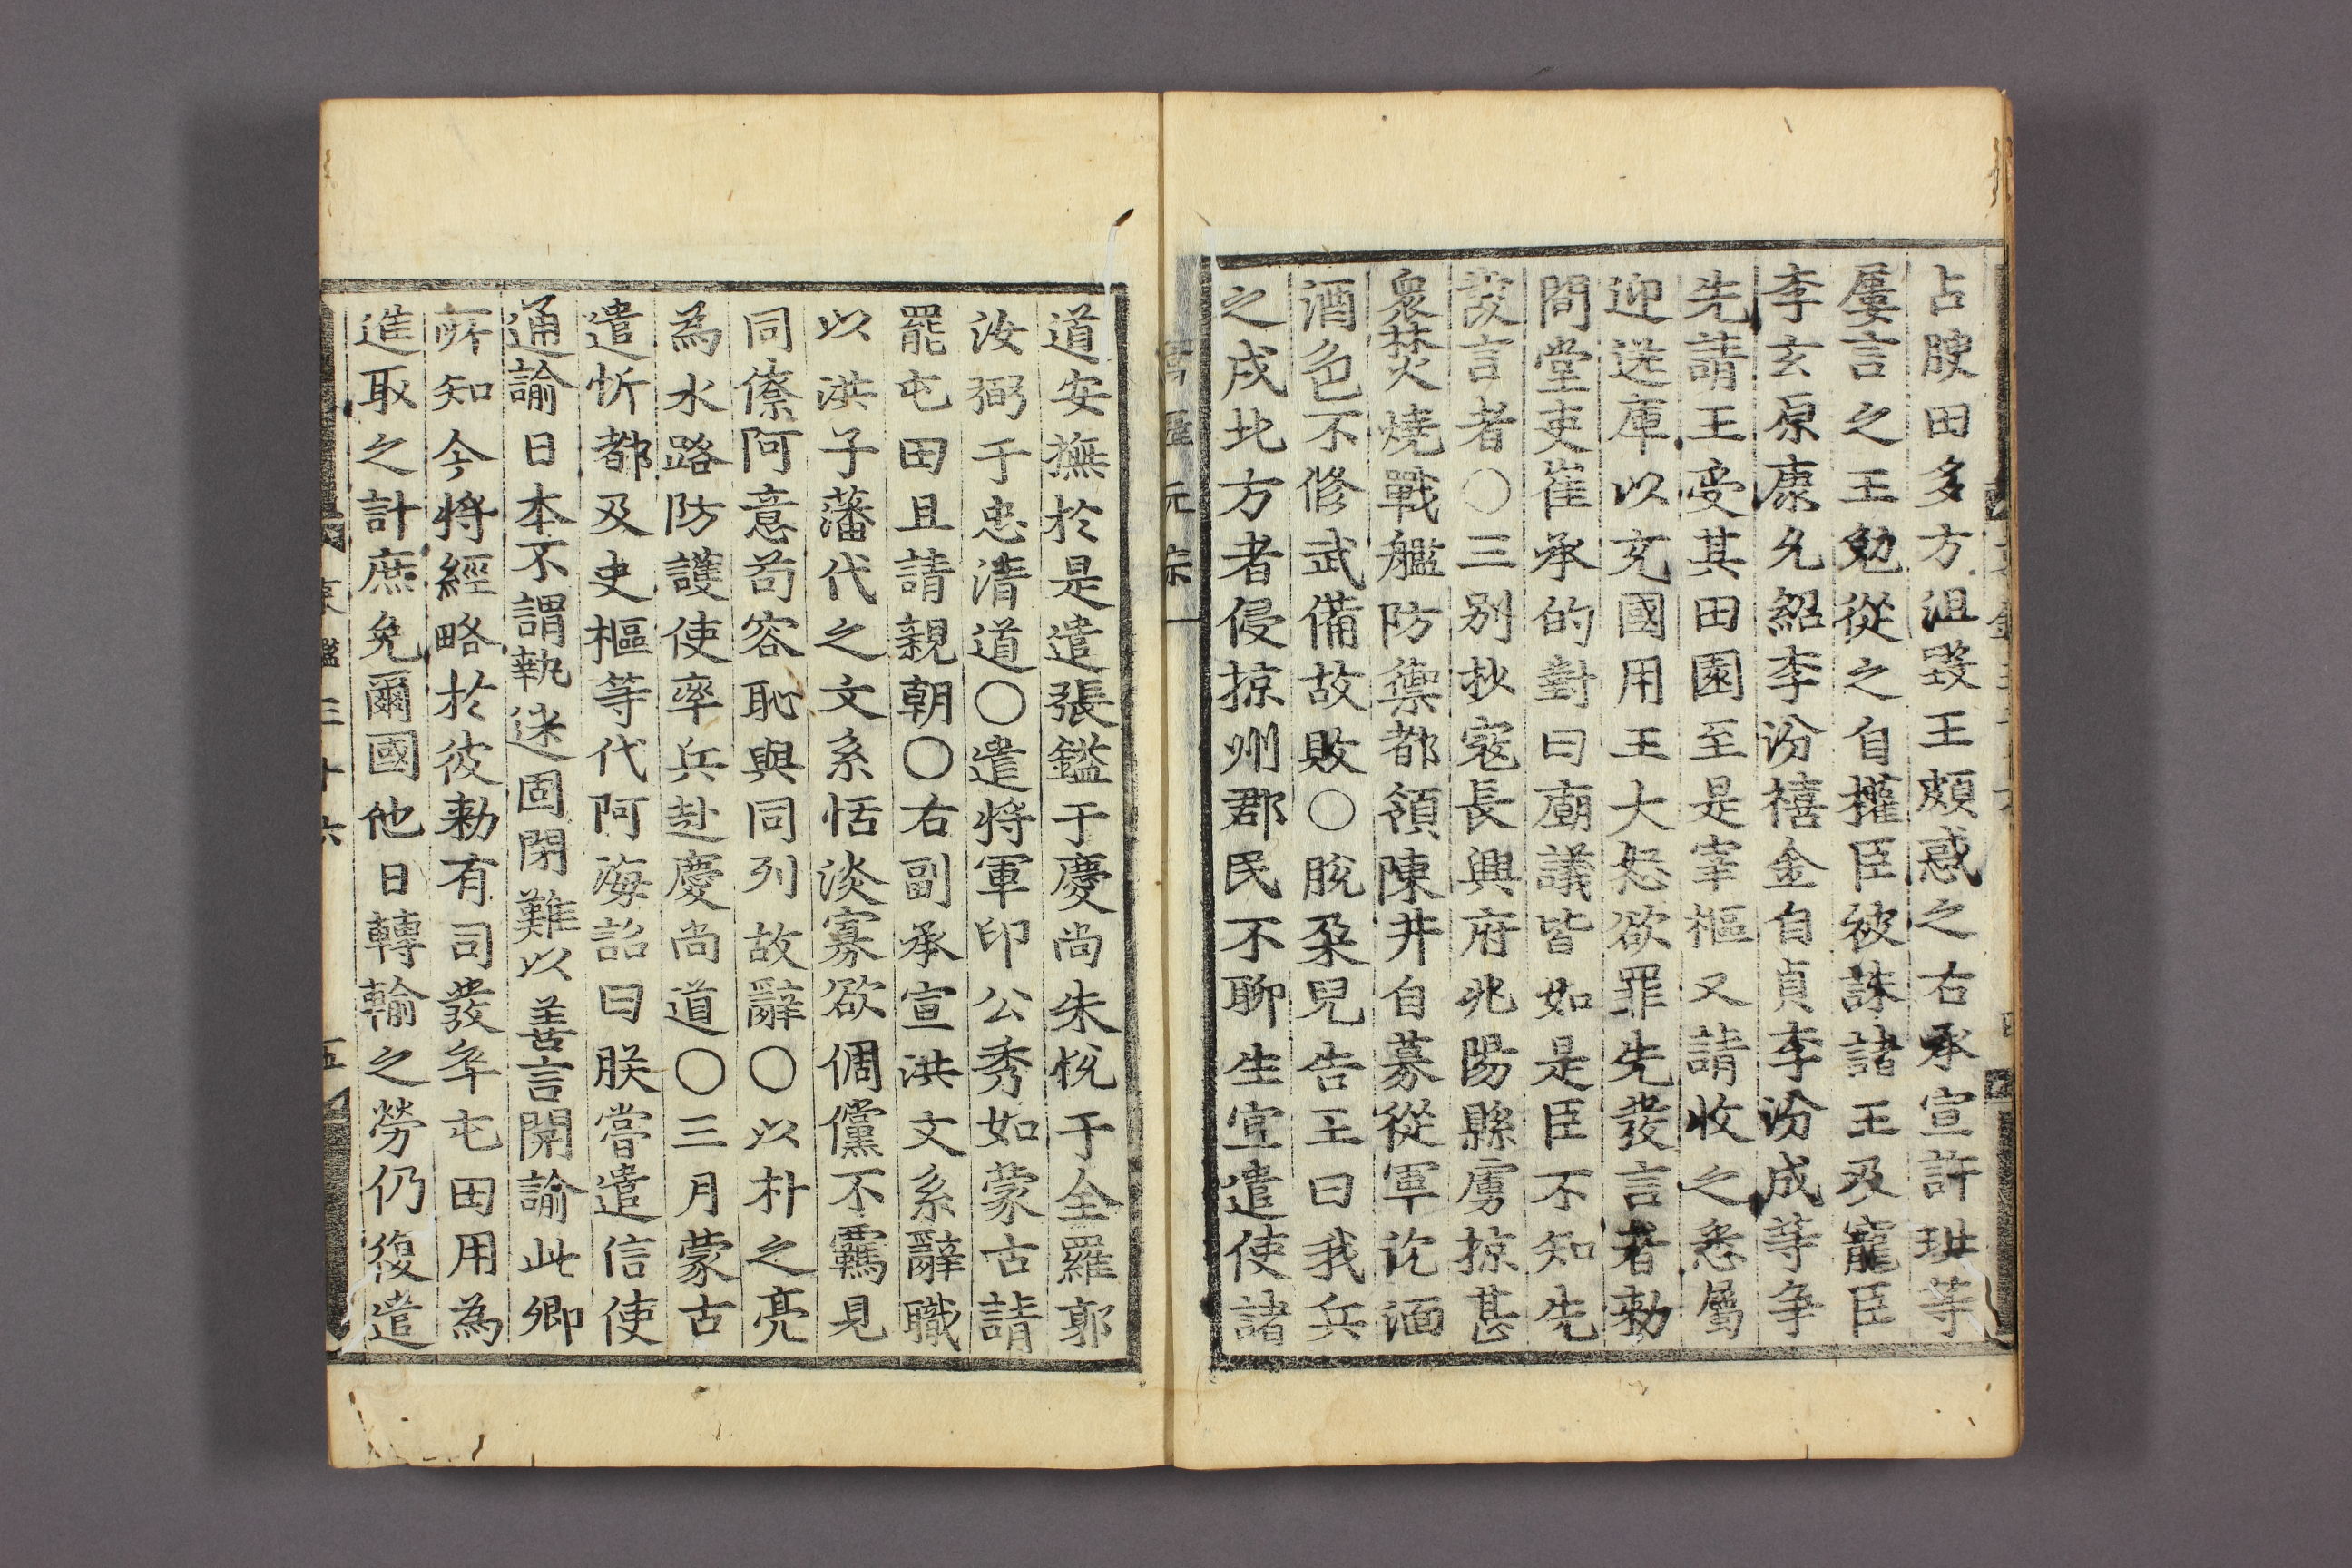 占腴田多方沮毀王頗惑之右承宣許珙等
屢言之王勉從之自權臣彼誅諸王及寵臣
李玄原康允紹李汾禧金自貞李汾成等爭
先請王受其田園至是宰樞又請收之悉屬
迎送庫以充國用王大怒欲罪先發言者勑
問堂吏崔承的對曰廟議皆如是臣不知先
發言者〇三別抄寇長興府兆陽縣虜掠甚
衆焚燒戰艦防禦都領陳井自募從軍沈湎
酒色不修武備故敗〇脫朶兒告王曰我兵
之戍北方者侵掠州郡民不聊生宜遣使諸
道安撫於是遣張鎰于慶尙朱悅于全羅郭
汝弼于忠淸道〇遣將軍印公秀如蒙古請
罷屯田且請親朝〇右副承宣洪文系辭職
以洪子藩代之文系恬淡寡欲倜儻不羈見
同僚阿意苟容恥與同列故辭〇以朴之亮
爲水路防護使率兵赴慶尙道〇三月蒙古
遣忻都及史樞等代阿海詔曰朕嘗遣信使
通諭日本不謂執迷固閉難以善言開諭此卿
所知今將經略於彼勑有司發卒屯田用爲
進取之計庶免爾國他日轉輸之勞仍復遣
鑑三十六 五